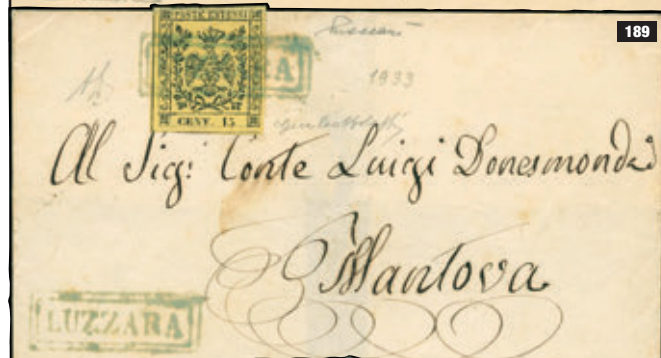 189
POSTE ESTENSI
CENT. 15
1933
Al Sig: Conte Luigi Donesmondi
Mantova
LUZZARA